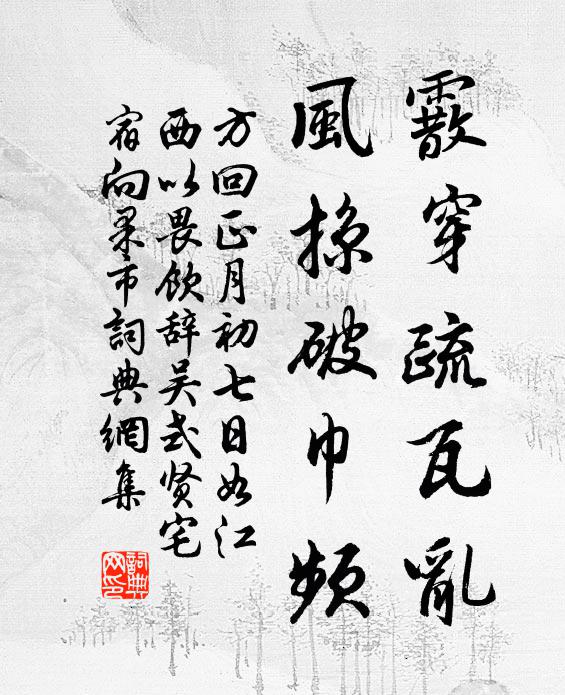 霰穿疏瓦亂
風掠破巾頻
方回正月初七日如江
西以畏飲辞吴式贤宅
宿向杲市詞典網集
詞典網印